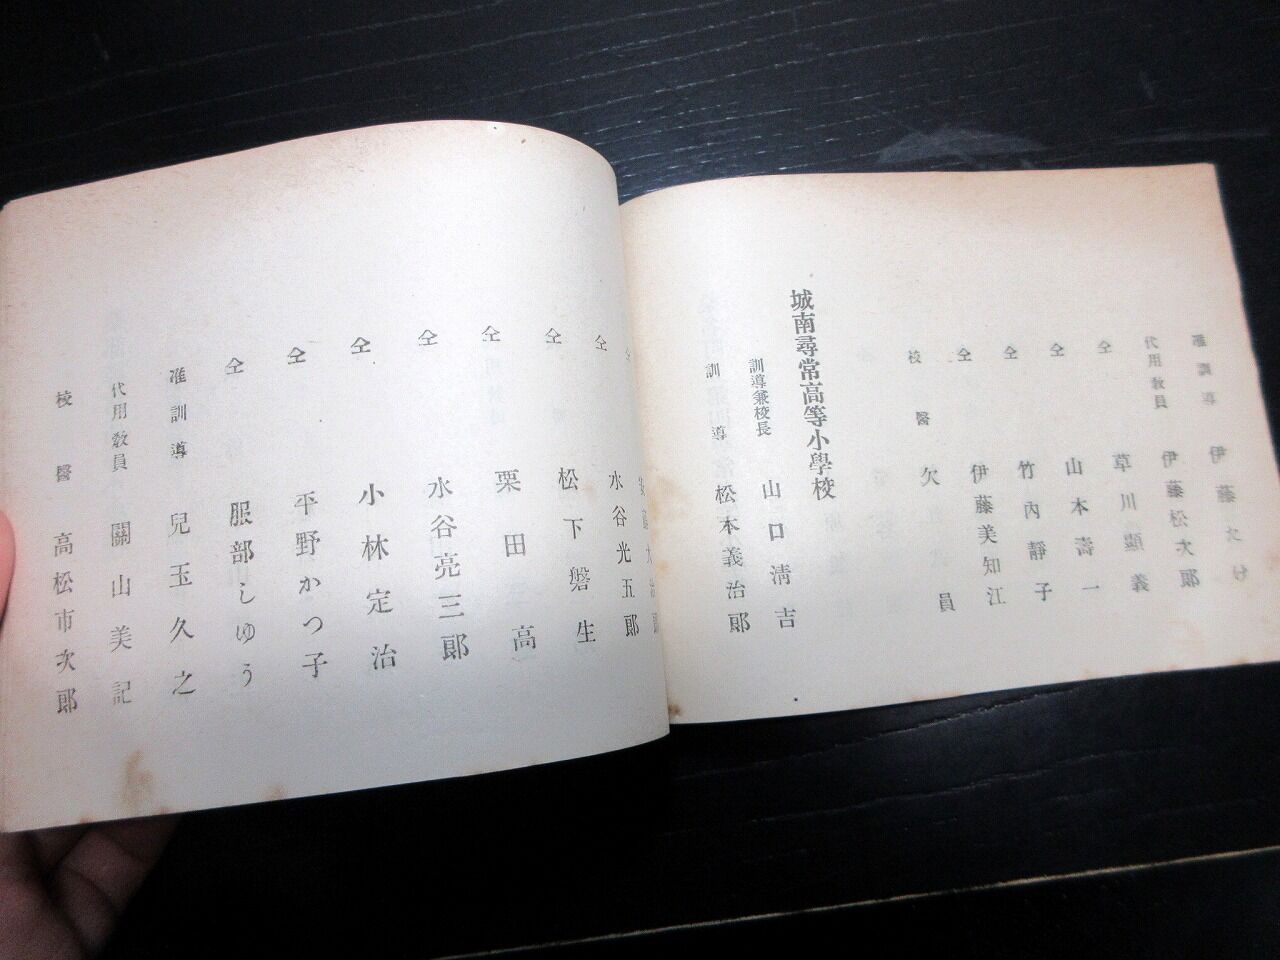 准訓導 伊藤たけ
代用教員 伊藤松次郎
仝 草川顯義
仝 山本壽一
仝 竹內靜子
仝 伊藤美知江
校醫 欠員
城南尋常高等小學校
訓導兼校長 山口淸吉
訓導 松本義治郎
仝
仝 水谷光五郎
仝 松下磐生
仝 栗田高
仝 水谷亮三郎
仝 小林定治
仝 平野かつ子
仝 服部しゆう
准訓導 兒玉久之
代用教員 關山美記
校醫 高松市次郎